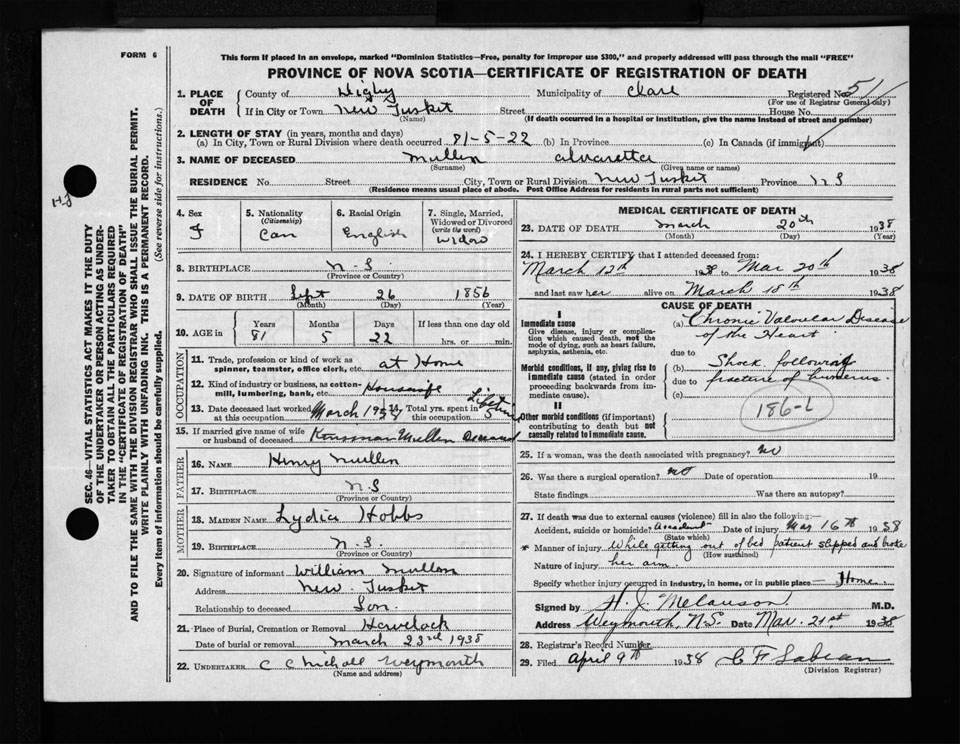 FORM 6
This form if placed in an envelope, marked "Dominion Statistics—Free, penalty for improper use $300," and properly addressed will pass through the mail "FREE"
PROVINCE OF NOVA SCOTIA—CERTIFICATE OF REGISTRATION OF DEATH
1. PLACE OF DEATH
County of Digby Municipality of Clare Registered No. 511
(For use of Registrar General only)
If in City or Town New Tusket Street House No.
(Name) (If death occurred in a hospital or institution, give the name instead of street and number)
2. LENGTH OF STAY (in years, months and days)
(a) In City, Town or Rural Division where death occurred 81-5-22 (b) In Province (c) In Canada (if immigrant)
3. NAME OF DECEASED Mullen Alvaretta
(Surname) (Given name or names)
RESIDENCE No. Street City, Town or Rural Division New Tusket Province N S
(Residence means usual place of abode. Post Office Address for residents in rural parts not sufficient)
4. Sex F
5. Nationality (Citizenship) Can
6. Racial Origin English
7. Single, Married, Widowed or Divorced (write the word) Widow
8. BIRTHPLACE N. S.
(Province or Country)
9. DATE OF BIRTH Sept 26 1856
(Month) (Day) (Year)
10. AGE in Years 81 Months 5 Days 22 If less than one day old hrs. or min.
OCCUPATION
11. Trade, profession or kind of work as spinner, teamster, office clerk, etc. at Home
12. Kind of industry or business, as cotton-mill, lumbering, bank, etc. Housewife
13. Date deceased last worked at this occupation March 1937 Total yrs. spent in this occupation Lifetime
15. If married give name of wife or husband of deceased Mullen Deceased
FATHER
16. NAME Henry Mullen
17. BIRTHPLACE N. S
(Province or Country)
MOTHER
18. MAIDEN NAME Lydia Hobbs
19. BIRTHPLACE N. S.
(Province or Country)
20. Signature of informant William Mullen
Address New Tusket
Relationship to deceased Son.
21. Place of Burial, Cremation or Removal Havelock
Date of burial or removal March 23rd 1938
22. UNDERTAKER C C Nicholl Weymouth
(Name and address)
MEDICAL CERTIFICATE OF DEATH
23. DATE OF DEATH March 20th 1938
(Month) (Day) (Year)
24. I HEREBY CERTIFY that I attended deceased from:
March 12th 1938 to Mar 20th 1938
and last saw her alive on March 18th 1938
CAUSE OF DEATH
I
Immediate cause
Give disease, injury or complication which caused death, not the mode of dying, such as heart failure, asphyxia, asthenia, etc.
(a) Chronic Valvular Disease of the Heart
due to
Morbid conditions, if any, giving rise to immediate cause (stated in order proceeding backwards from immediate).
(b) Shock following
due to fracture of humerus.
(c)
II
Other morbid conditions (if important) contributing to death but not causally related to immediate cause.
186-L
25. If a woman, was the death associated with pregnancy? No
26. Was there a surgical operation? No Date of operation 19
State findings Was there an autopsy?
27. If death was due to external causes (violence) fill in also the following:
Accident, suicide or homicide? Accident Date of injury Mar 16th 1938
(State which)
* Manner of injury While getting out of bed patient slipped and broke
(How sustained)
Nature of injury her arm.
Specify whether injury occurred in industry, in home, or in public place— Home.
Signed by H. J. Melanson M.D.
Address Weymouth, N.S. Date Mar. 21st 1938
28. Registrar's Record Number
29. Filed April 9th 1938 C F
(Division Registrar)
SEC. 46—VITAL STATISTICS ACT MAKES IT THE DUTY
OF THE UNDERTAKER OR PERSON ACTING AS UNDER-
TAKER TO OBTAIN ALL THE PARTICULARS REQUIRED
IN THE "CERTIFICATE OF REGISTRATION OF DEATH"
AND TO FILE THE SAME WITH THE DIVISION REGISTRAR WHO SHALL ISSUE THE BURIAL PERMIT.
WRITE PLAINLY WITH UNFADING INK. THIS IS A PERMANENT RECORD.
Every item of information should be carefully supplied. (See reverse side for instructions.)